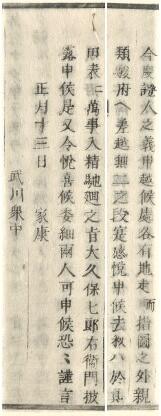 今度證人之義申越候處各有地走
類駿府〈差越無二之段寔感悦申候去秋八於
田表
萬事入精馳廻之旨大久保七郎右衛門披
露申候是又令悦喜候委細兩人可申候恐〻謹言
正月十三日　家康
武川衆中